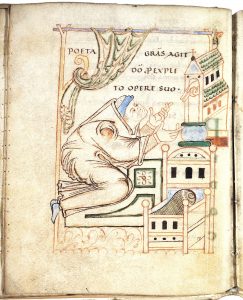 POETA GRAS AGIT
DO P EXPLI
TO OPERE SUO ·